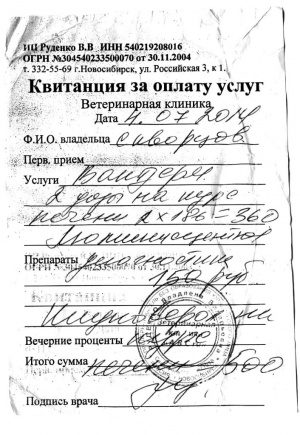 ИП Руденко В.В ИНН 540219208016
ОГРН №304540233500070 от 30.11.2004
т. 332-55-69 г.Новосибирск, ул. Российская 3, к 1.
Квитанция за оплату услуг
Ветеринарная клиника
Дата 4.07.2014
Ф.И.О. владельца Скворцов
Перв. прием
Услуги Вандерм
2 дозы на курс
2 х 180 = 360
Люминисцентная
Препараты диагностика
150 руб.
Вечерние проценты
Итого сумма 500
Подпись врача